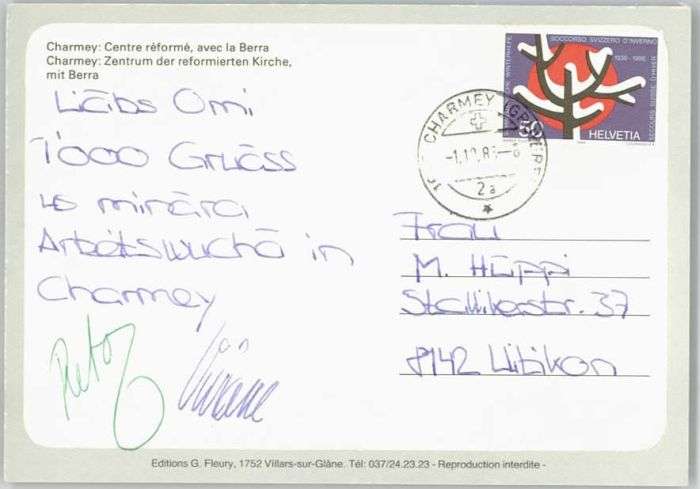 Charmey: Centre réformé, avec la Berra
Charmey: Zentrum der reformierten Kirche,
mit Berra
Liäbs Omi
1000 Grüäss
us minära
Arbeitswuchä in
Charmey
Reto
Viviane
SOCCORSO SVIZZERO D'INVERNO
1936-1986
50
HELVETIA
CHARMEY (GRUYERE)
2a
Frau
M. Hüppi
Stallikerstr. 37
8142 Uitikon
Editions G. Fleury, 1752 Villars-sur-Glâne. Tél: 037/24.23.23 - Reproduction interdite -